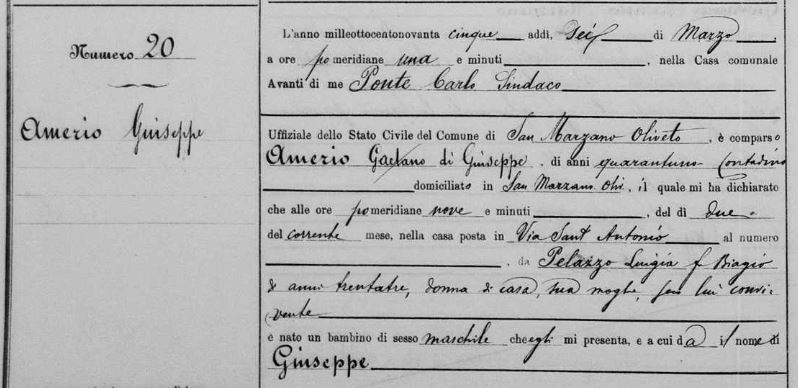 Numero 20
Amerio Giuseppe
L'anno milleottocentonovanta cinque addì, Sei di Marzo
a ore pomeridiane una e minuti , nella Casa comunale
Avanti di me Ponte Carlo Sindaco
Uffiziale dello Stato Civile del Comune di San Marzano Oliveto, è comparso
Amerio Gaetano di Giuseppe, di anni quarantuno Contadino
domiciliato in San Marzano Oliv., il quale mi ha dichiarato
che alle ore pomeridiane nove e minuti , del dì due
del corrente mese, nella casa posta in Via Sant Antonio al numero
, da Pelazzo Luigia f Biagio
di anni trentatre, donna di casa, sua moglie, seco lui convi-
vente
è nato un bambino di sesso maschile che egli mi presenta, e a cui dà il nome di
Giuseppe